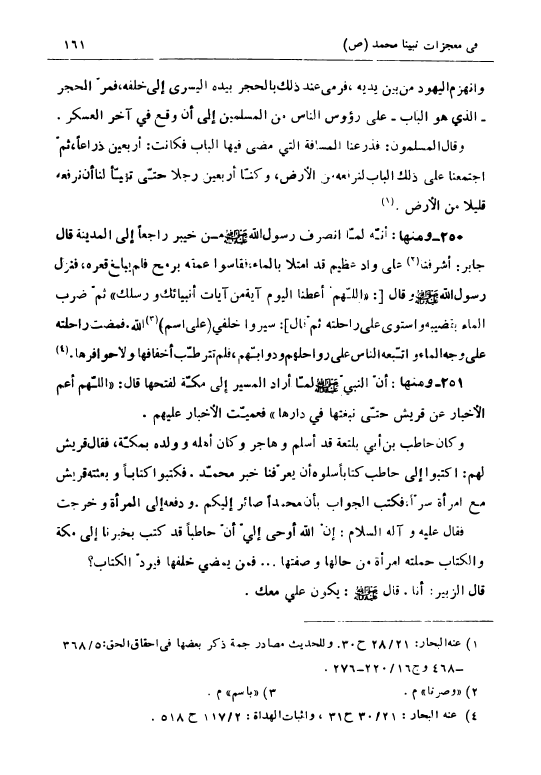 في معجزات نبينا محمد (ص) ١٦١
وانهزم اليهود من بين يديه ، فرمى عند ذلك بالحجر بيده اليسرى إلى خلفه، فمرّ الحجر
ـ الذي هو الباب ـ على رؤوس الناس من المسلمين إلى أن وقع في آخر العسكر .
وقال المسلمون: فذرعنا المسافة التي مضى فيها الباب فكانت: أربعين ذراعاً، ثمّ
اجتمعنا على ذلك الباب لنرفعه من الأرض، وكنّا أربعين رجلا حتّى تهيّأ لنا أن نرفعه
قليلا من الأرض . (١)
٢٥٠ـ ومنها : أنّه لمّا انصرف رسول الله ﷺ من خيبر راجعاً إلى المدينة قال
جابر: أشرفنا(٢) على واد عظيم قد امتلا بالماء، فقاسوا عمقه برمح فلم يبلغ قعره، فنزل
رسول الله ﷺ و قال [: «اللّهمّ أعطنا اليوم آية من آيات أنبيائك و رسلك» ثمّ ضرب
الماء بقضيبه واستوى على راحلته ثمّ قال]: سيروا خلفي (على اسم)(٣) الله. فمضت راحلته
على وجه الماء و اتّبعه الناس على رواحلهم و دوابّهم ، فلم تترطّب أخفافها ولا حوافرها.(٤)
٢٥١ـ ومنها : أنّ النبيّ ﷺ لمّا أراد المسير إلى مكّة لفتحها قال: «اللّهمّ أعم
الأخبار عن قريش حتّى نبغتها في دارها» فعميت الأخبار عليهم .
وكان حاطب بن أبي بلتعة قد أسلم و هاجر وكان أهله و ولده بمكّة، فقال قريش
لهم: اكتبوا إلى حاطب كتاباً سلوه أن يعرّفنا خبر محمّد . فكتبوا كتاباً و بعثته قريش
مع امرأة سرّاً، فكتب الجواب بأن محمداً صائر إليكم . و دفعه إلى المرأة و خرجت
فقال عليه و آله السلام : إنّ الله أوحى إليّ أنّ حاطباً قد كتب بخبرنا إلى مكة
والكتاب حملته امرأة من حالها و صفتها ... فمن يمضي خلفها فيردّ الكتاب؟
قال الزبير: أنا . قال ﷺ : يكون علي معك .
١) عنه البحار: ٢٨/٢١ ح٣٠. وللحديث مصادر جمة ذكر بعضها في احقاق الحق: ٣٦٨/٥
ـ٤٦٨ و ج٢٢٠/١٦ـ٢٧٦ .
٢) «وصرنا» م . ٣) «باسم» م .
٤) عنه البحار : ٣٠/٢١ ح٣١ ، واثبات الهداة: ١١٧/٢ ح ٥١٨ .